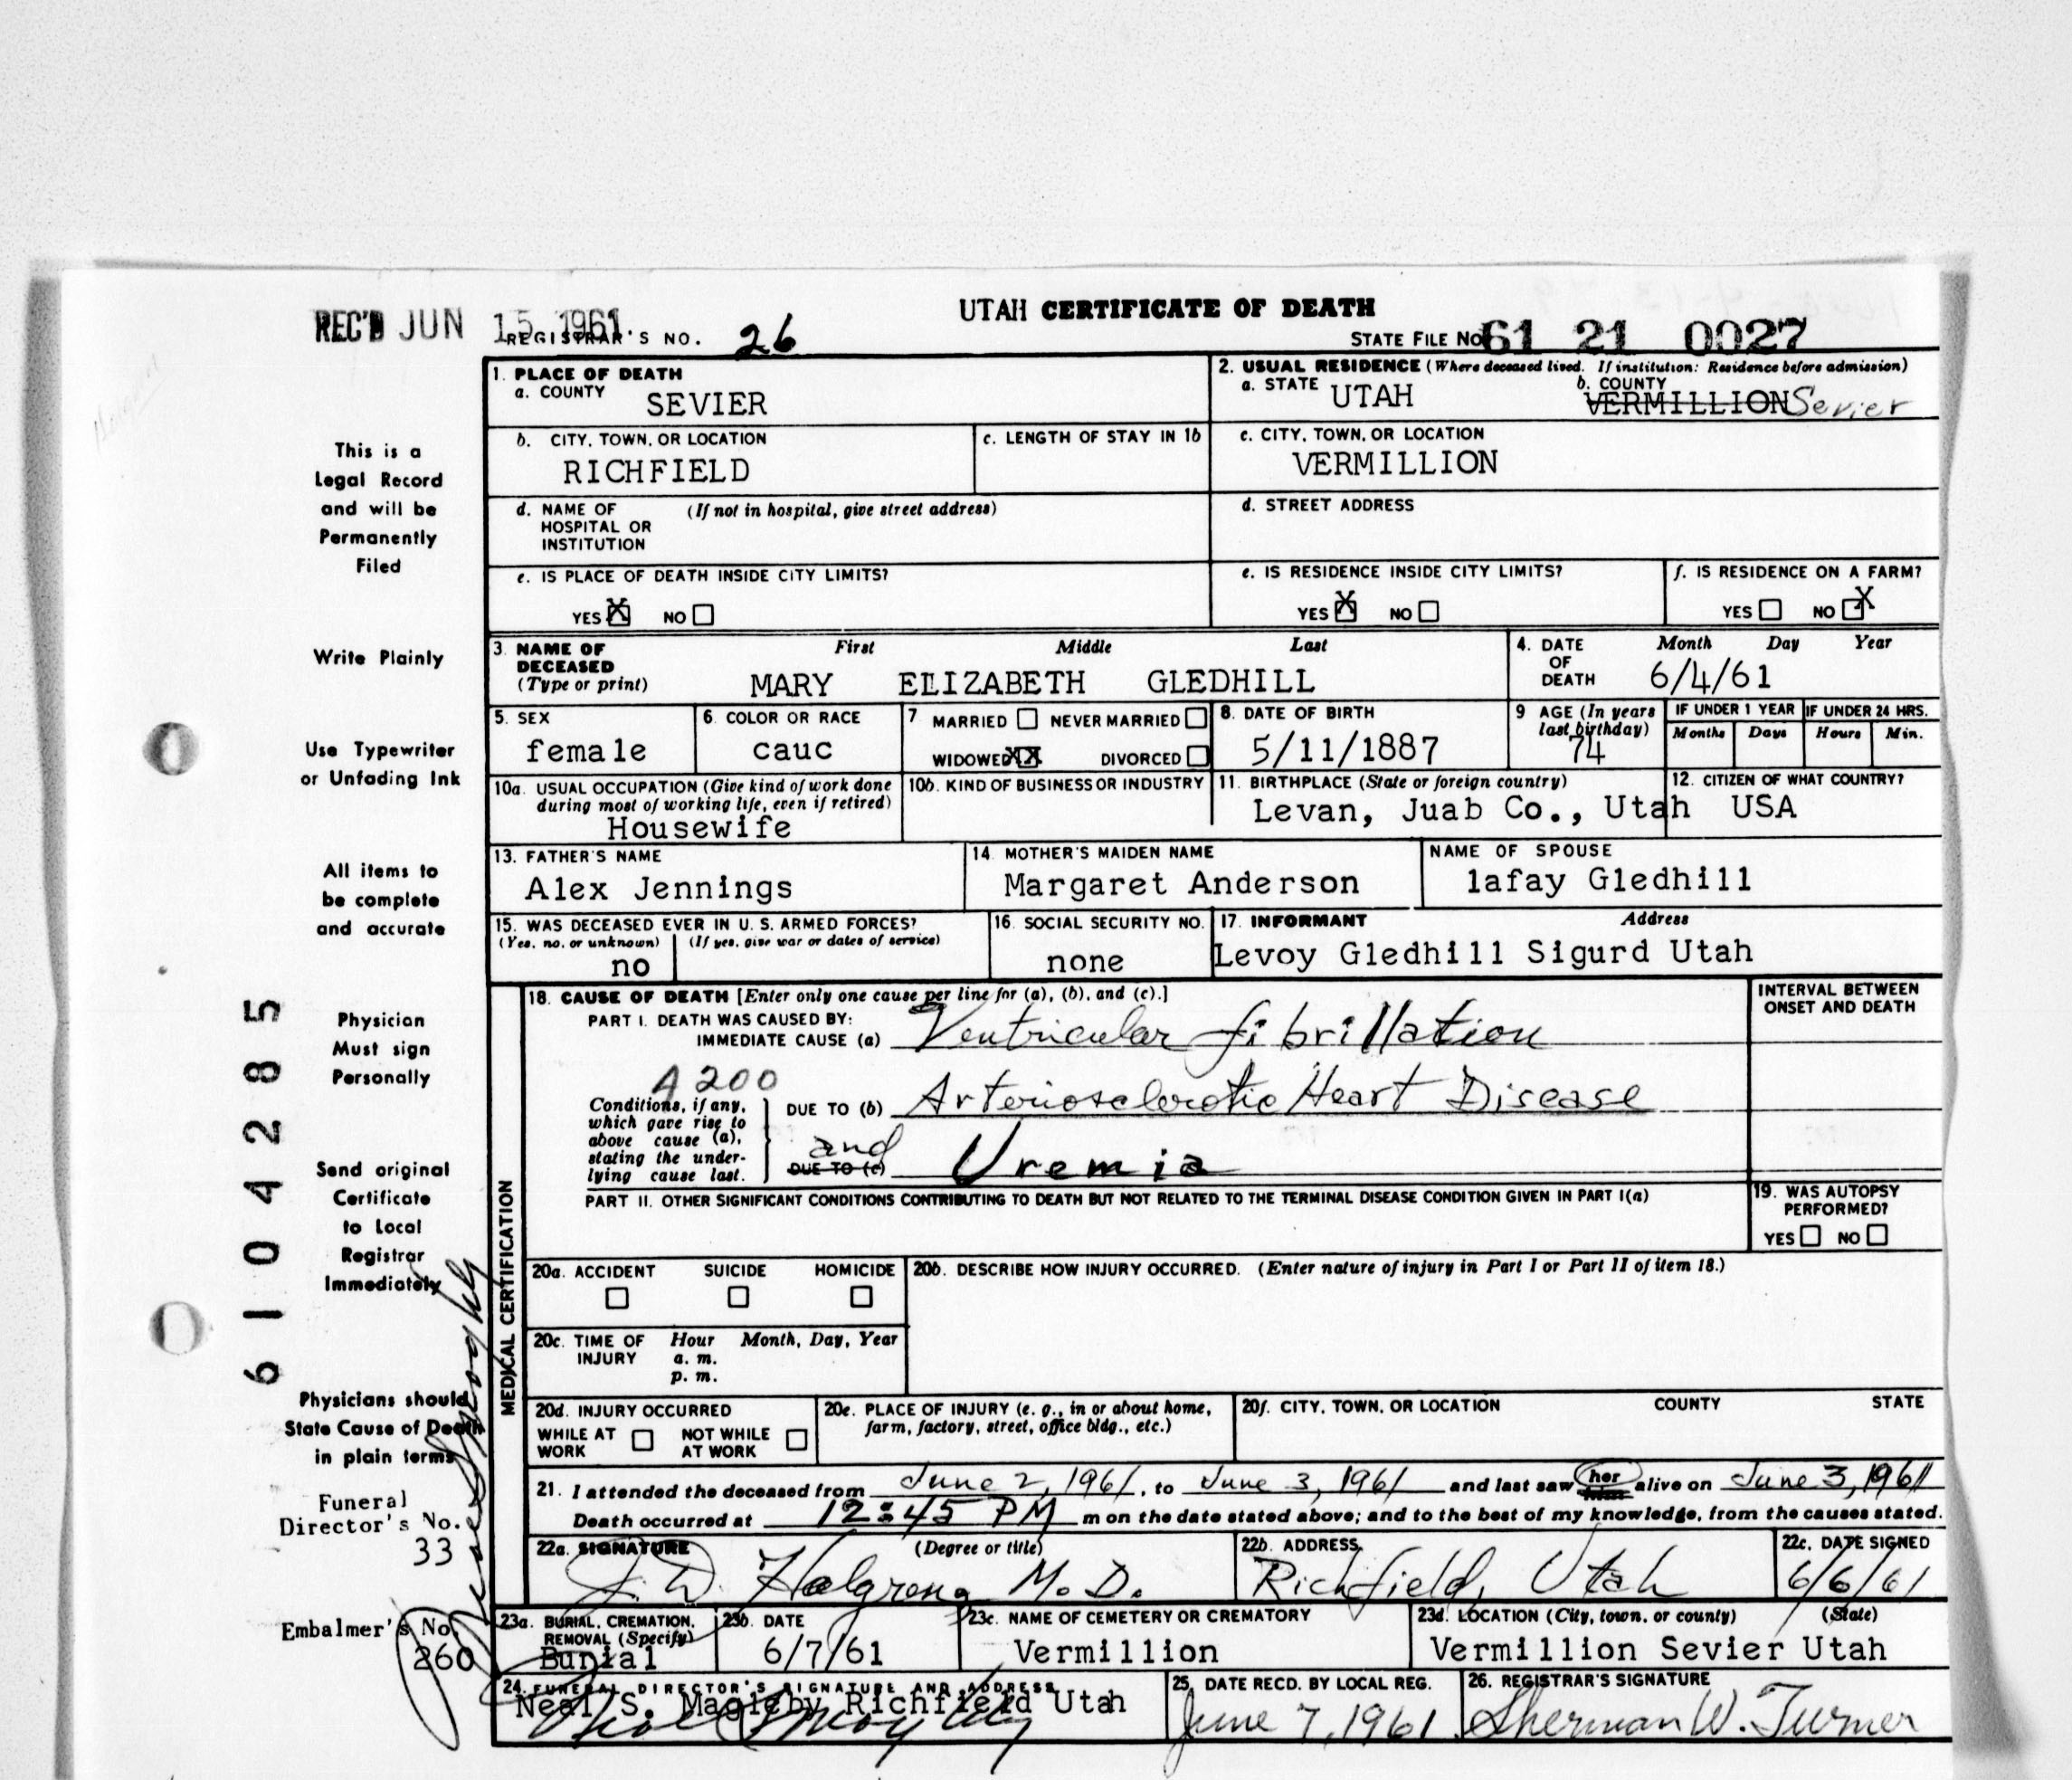 UTAH CERTIFICATE OF DEATH
REC'D JUN 15 1961
REGISTRAR'S NO. 26
STATE FILE NO 61 21 0027
1. PLACE OF DEATH
a. COUNTY SEVIER
2. USUAL RESIDENCE (Where deceased lived. If institution: Residence before admission)
a. STATE UTAH b. COUNTY VERMILLION Sevier
b. CITY, TOWN, OR LOCATION RICHFIELD
c. LENGTH OF STAY IN 1b
c. CITY, TOWN, OR LOCATION VERMILLION
d. NAME OF HOSPITAL OR INSTITUTION (If not in hospital, give street address)
d. STREET ADDRESS
e. IS PLACE OF DEATH INSIDE CITY LIMITS?
YES X NO
e. IS RESIDENCE INSIDE CITY LIMITS?
YES X NO
f. IS RESIDENCE ON A FARM?
YES NO X
3. NAME OF DECEASED (Type or print)
First Middle Last
MARY ELIZABETH GLEDHILL
4. DATE OF DEATH Month Day Year
6/4/61
5. SEX female
6. COLOR OR RACE cauc
7 MARRIED NEVER MARRIED
WIDOWED XX DIVORCED
8. DATE OF BIRTH 5/11/1887
9 AGE (In years last birthday) 74
IF UNDER 1 YEAR Months Days
IF UNDER 24 HRS. Hours Min.
10a. USUAL OCCUPATION (Give kind of work done during most of working life, even if retired)
Housewife
10b. KIND OF BUSINESS OR INDUSTRY
11. BIRTHPLACE (State or foreign country)
Levan, Juab Co., Utah
12. CITIZEN OF WHAT COUNTRY?
USA
13. FATHER'S NAME
Alex Jennings
14. MOTHER'S MAIDEN NAME
Margaret Anderson
NAME OF SPOUSE
lafay Gledhill
15. WAS DECEASED EVER IN U. S. ARMED FORCES?
(Yes, no, or unknown) (If yes, give war or dates of service)
no
16. SOCIAL SECURITY NO.
none
17. INFORMANT Address
Levoy Gledhill Sigurd Utah
MEDICAL CERTIFICATION
18. CAUSE OF DEATH [Enter only one cause per line for (a), (b), and (c).]
INTERVAL BETWEEN ONSET AND DEATH
PART I. DEATH WAS CAUSED BY:
IMMEDIATE CAUSE (a) Ventricular fibrillation
4200
Conditions, if any, which gave rise to above cause (a), stating the underlying cause last.
DUE TO (b) Arteriosclerotic Heart Disease
and
DUE TO (c) Uremia
PART II. OTHER SIGNIFICANT CONDITIONS CONTRIBUTING TO DEATH BUT NOT RELATED TO THE TERMINAL DISEASE CONDITION GIVEN IN PART I(a)
19. WAS AUTOPSY PERFORMED?
YES NO
20a. ACCIDENT SUICIDE HOMICIDE
20b. DESCRIBE HOW INJURY OCCURRED. (Enter nature of injury in Part I or Part II of item 18.)
20c. TIME OF INJURY Hour Month, Day, Year
a. m.
p. m.
20d. INJURY OCCURRED
WHILE AT WORK NOT WHILE AT WORK
20e. PLACE OF INJURY (e. g., in or about home, farm, factory, street, office bldg., etc.)
20f. CITY, TOWN, OR LOCATION COUNTY STATE
21. I attended the deceased from June 2, 1961, to June 3, 1961 and last saw her alive on June 3, 1961
Death occurred at 12:45 PM m on the date stated above; and to the best of my knowledge, from the causes stated.
22a. SIGNATURE (Degree or title)
M. D.
22b. ADDRESS
Richfield, Utah
22c. DATE SIGNED
6/6/61
23a. BURIAL, CREMATION, REMOVAL (Specify)
Burial
23b. DATE
6/7/61
23c. NAME OF CEMETERY OR CREMATORY
Vermillion
23d. LOCATION (City, town, or county) (State)
Vermillion Sevier Utah
24. FUNERAL DIRECTOR'S SIGNATURE AND ADDRESS
Neal S. Magleby Richfield Utah
25. DATE RECD. BY LOCAL REG.
June 7, 1961
26. REGISTRAR'S SIGNATURE
Sherman W. Turner
This is a
Legal Record
and will be
Permanently
Filed
Write Plainly
Use Typewriter
or Unfading Ink
All items to
be complete
and accurate
Physician
Must sign
Personally
Send original
Certificate
to Local
Registrar
Immediately
Physicians should
State Cause of Death
in plain terms
Funeral
Director's No.
33
Embalmer's No.
260
6104285